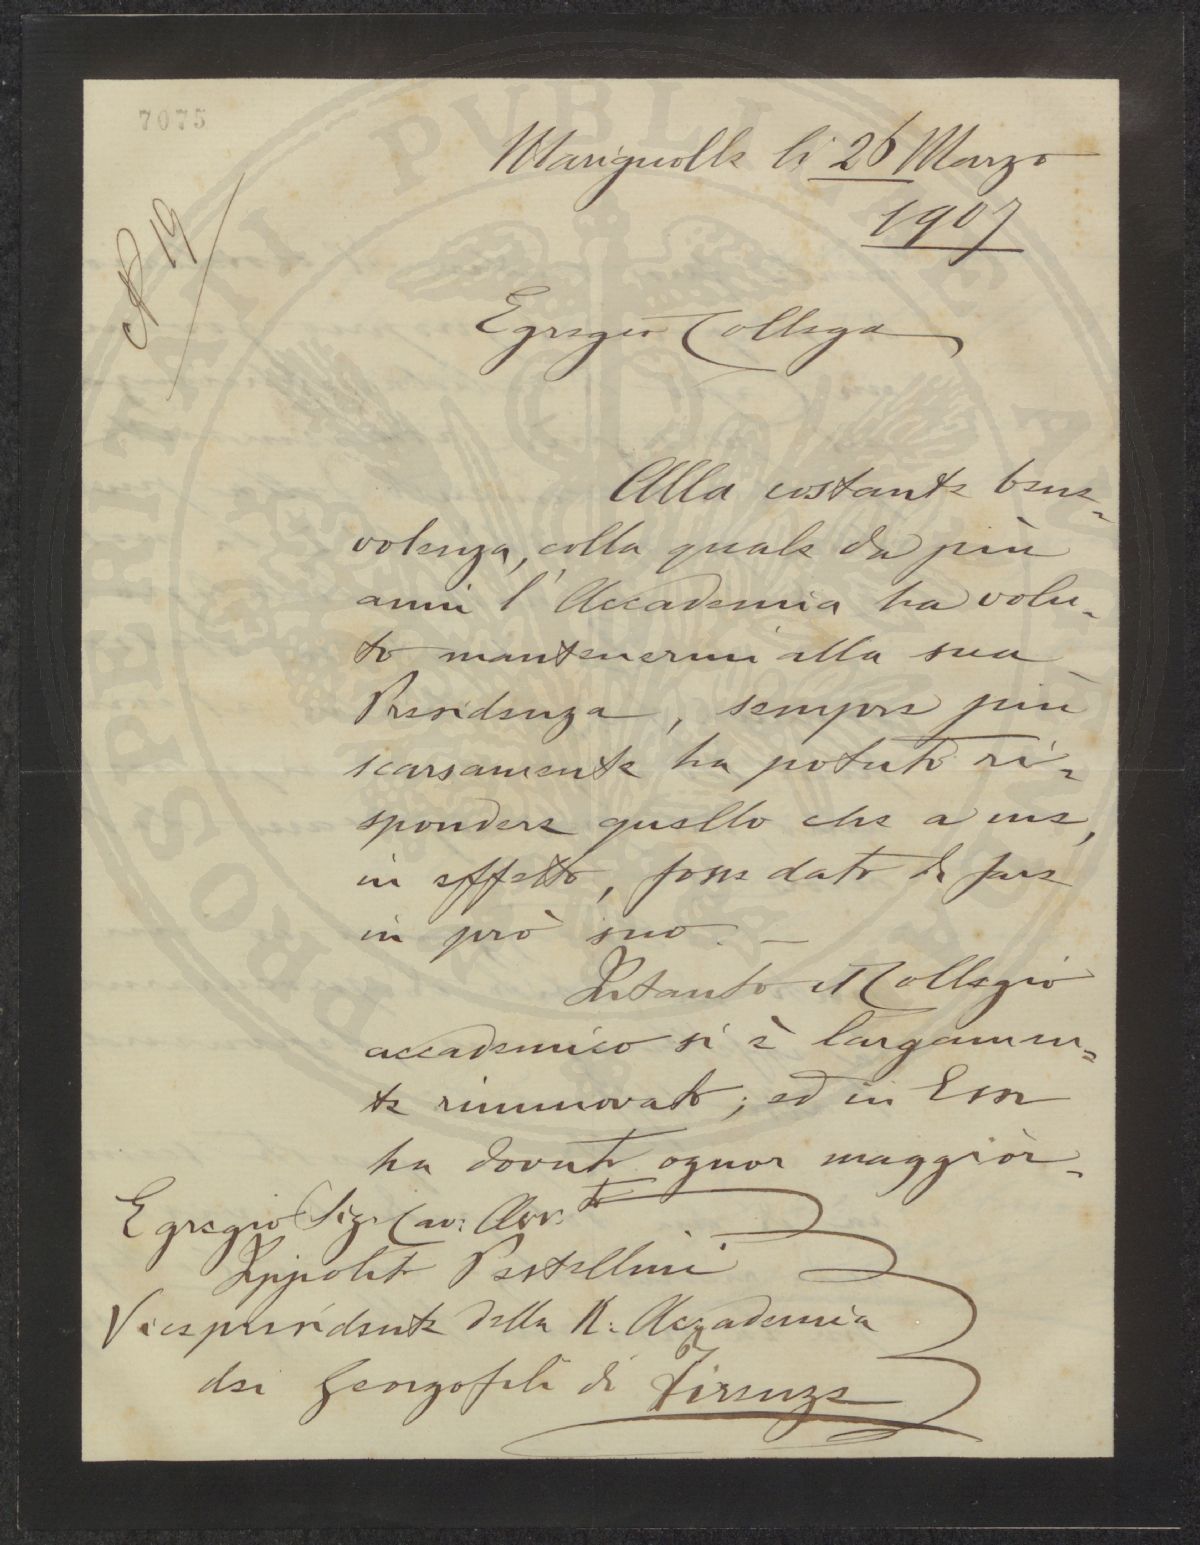 7075
N 19
Marignolle li 26 Marzo
1907
Egregio Collega
Alla costante bene=
volenza, colla quale da più
anni l'Accademia ha volu=
to mantenermi alla sua
Presidenza, sempre più
scarsamente ha potuto ri=
spondere quello che a me,
in effetto, fosse dato di fare
in prò suo. —
Intanto il Collegio
accademico si è largamen=
te rinnuovato; ed in Esse
ha dovuto ognor maggior=
Egregio Sigr Cav: Avv:to
Ippolito Pestellini
Vicepresidente della R: Accademia
dei Georgofili di Firenze
PROSPERITATI PUBLICAE AUGENDAE